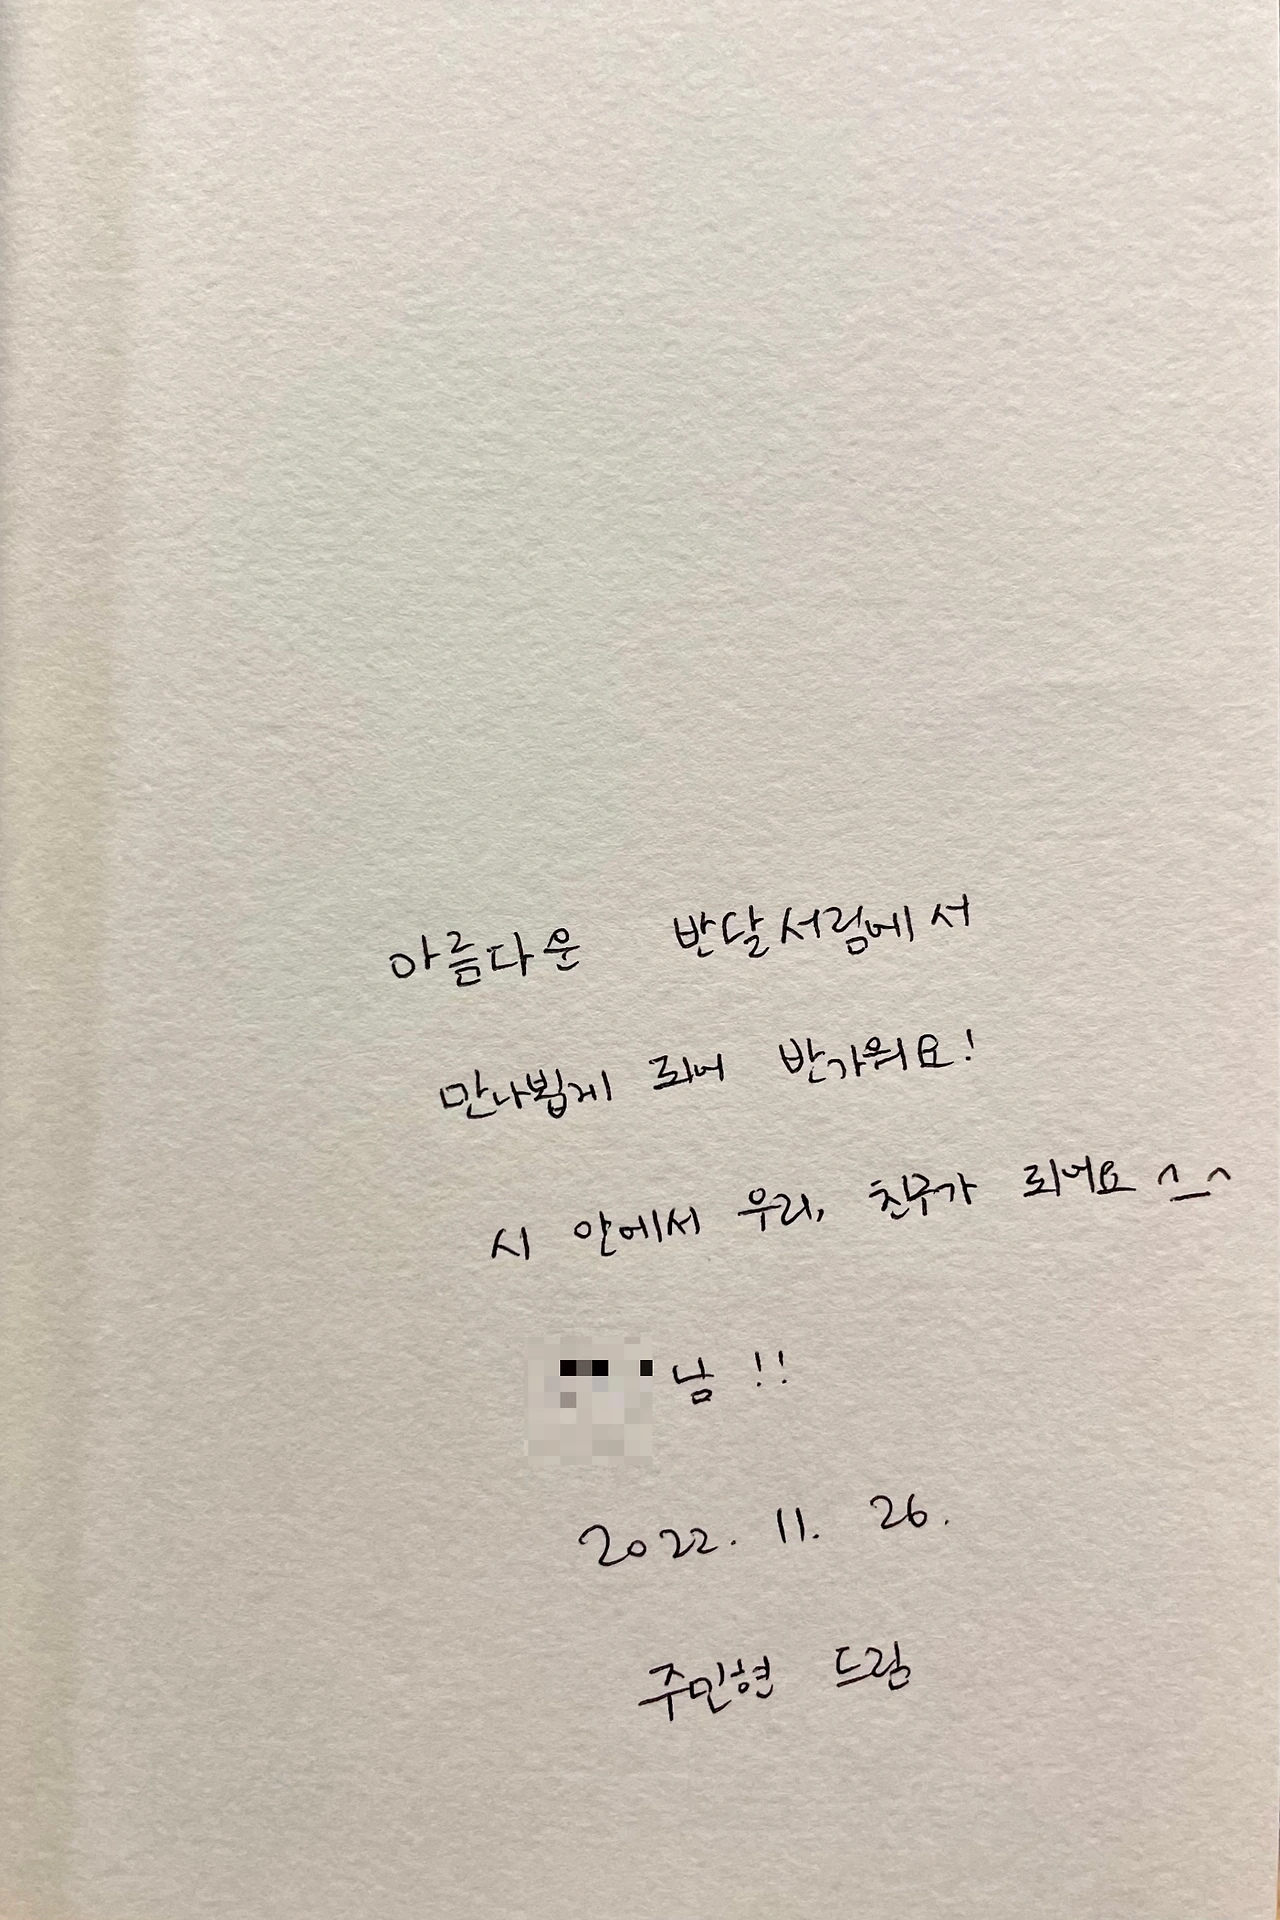 아름다운 반달서림에서
만나뵙게 되어 반가워요!
시 안에서 우리, 친구가 되어요 ^_^
님 !!
2022. 11. 26.
주민현 드림